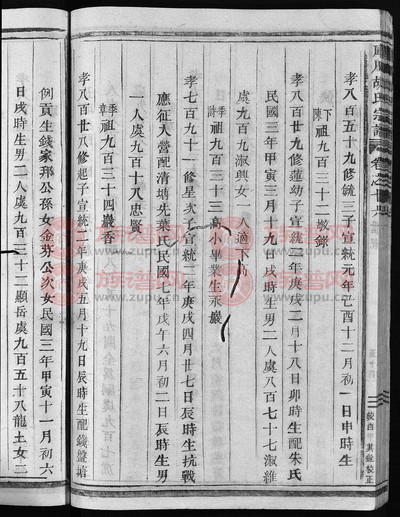 孝八百五十九修毓三子宣統元年己酉十二月初一日申時生
下陳 祖九百三十一毅錄
孝八百九十二修蓮幼子宣統二年庚戌二月十八日卯時生配朱氏
民國三年甲寅三月十九日戌時生男二人處八百七十七淑維
處九百九淑興女一人適下
季謝 祖九百三十三高小畢業生乘巖
孝七百九十一修星次子宣統二年庚戌四月廿七日辰時生抗戰
應征入營配清塘先葉氏民國七年戊午六月初二日辰時生男
一人處九百十八忠賢
季章 祖九百三十四巖香
孝八百廿八修起子宣統二年庚戌五月十九日辰時生配錢盤塘
例貢生錢家邦公孫女金芬公次女民國三年甲寅十一月初六
日戌時生男二人處九百三十二顯岳處九百五十八龍土女二
族譜网
www.zupu.cn